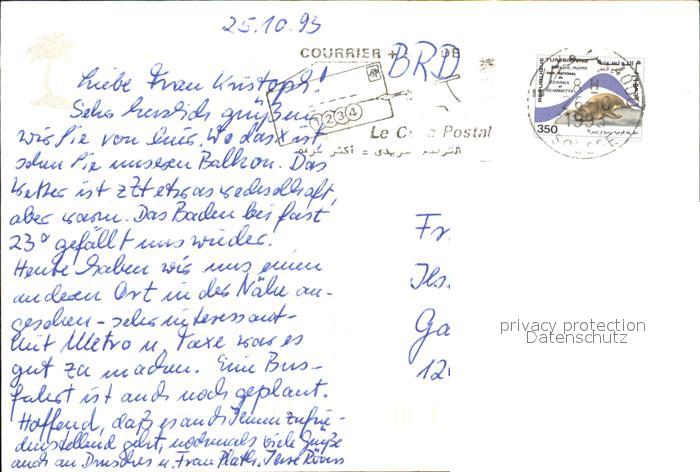 25.10.93
COURRIER + DE
BRD
Liebe Frau Kristoph!
Sehr herzlich grüßen
wir Sie von hier. Wo das x ist
sehen Sie unseren Balkon. Das
Wetter ist zZt etwas wechselhaft,
aber warm. Das Baden bei fast
23° gefällt uns wieder.
Heute haben wir uns einen
anderen Ort in der Nähe an-
gesehen – sehr interessant –
Mit Metro u. Taxe war es
gut zu machen. Eine Bus-
fahrt ist auch noch geplant.
Hoffend, daß es auch Ihnen zufrie-
denstellend geht, nochmals viele Grüße
auch an u. Frau Plath. Ihre
1234
Le Code Postal
الترقيم البريدي = أكثر
REPUBLIQUE TUNISIENNE
PARC NATIONAL DE
ZEMBRA
ZEMBRETTA
350
8 H
26 10
1993
SOUSSE
Fr
Ils.
Ga
12
privacy protection
Datenschutz